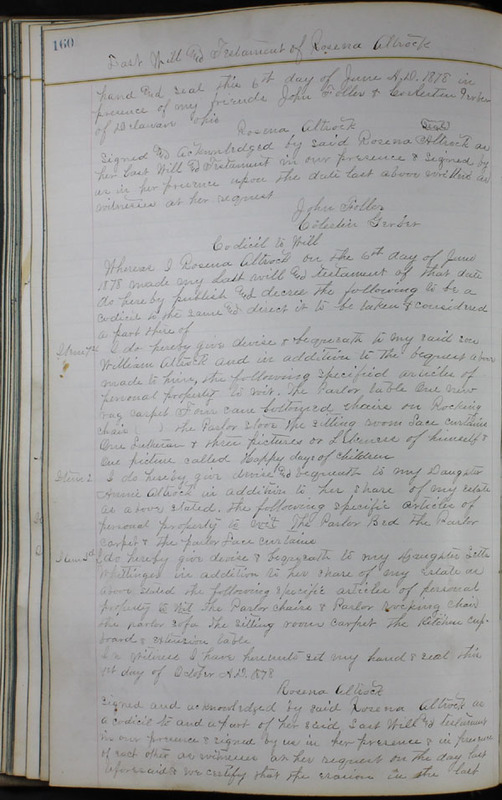 160
Last Will & Testament of Rosena Altrock
hand & seal this 6th day of June A.D. 1878 in
presence of my friends John Feller & Celestin Gerber
of Delaware Ohio
Rosena Altrock Seal
Signed & Acknowledged by said Rosena Altrock as
her Last Will & Testament in our presence & signed by
us in her presence upon the date last above written as
witnesses at her request
John Feller
Celestin Gerber
Codicil to Will
Whereas I Rosena Altrock on the 6th day of June
1878 made my last will & testament of that date
do hereby publish & decree the following to be a
codicil to the same & direct it to be taken & considered
as part thereof
Item 1st I do hereby give devise & bequeath to my said son
William Altrock and in addition to the bequest above
made to him, the following specified articles of
personal property to wit. The Parlor table One new
rag carpet Four cane bottomed chairs on Rocking
chair ( ) the Parlor stove The sitting room lace curtains
One & three pictures or Likeness of himself &
one picture called Happy days of children
Item 2 I do hereby give devise & bequeath to my Daughter
Annie Altrock in addition to her share of my estate
as above stated, the following specific articles of
personal property to wit. The Parlor Bed the Parlor
carpet & the parlor lace curtains
Item 3d I do hereby give devise & bequeath to my Daughter
in addition to her share of my Estate as
above stated the following specific articles of personal
property to wit The Parlor chairs & Parlor rocking chair
the parlor sofa The sitting room carpet the Kitchen cup-
board & extension table
In witness I have hereunto set my hand & seal this
1st day of October A.D. 1878
Rosena Altrock
Signed and acknowledged by said Rosena Altrock as
a codicil to and a part of her said Last Will & testament
in our presence & signed by us in her presence & in presence
of each other as witnesses at her request on the day last
aforesaid & we certify that the erasion in the last